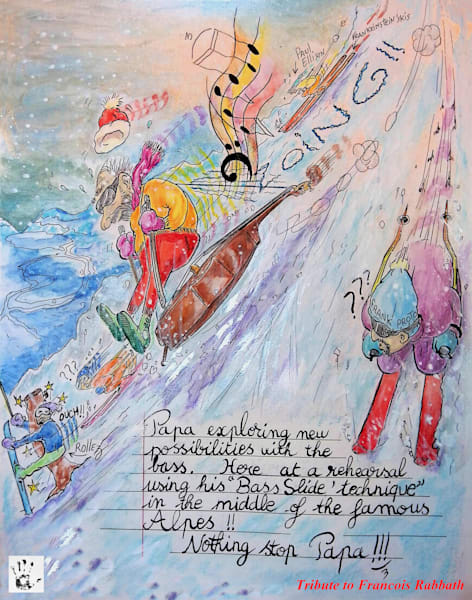 PAUL
Ellison
FRANKENSTEIN SKIS
OING!!
???
FRANK PROTO
???
OUCH!!
Rollez
Papa exploring new
possibilities with the
bass. Here at a rehearsal
using his "Bass Slide' technique"
in the middle of the famous
Alpes !!
Nothing stop Papa !!!
Tribute to Francois Rabbath